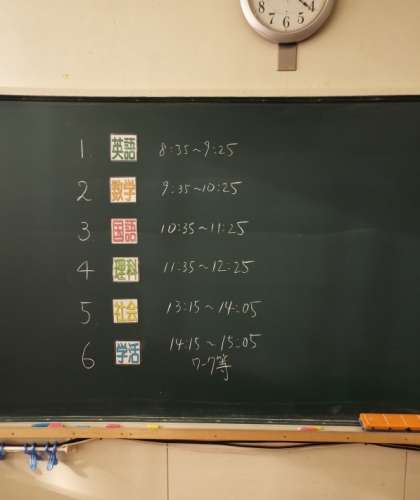 8 7 6 5 4
1. 英語 8:35~9:25
2 数学 9:35~10:25
3 国語 10:35~11:25
4 理科 11:35~12:25
5 社会 13:15~14:05
6 学活 14:15~15:05
ワーク等